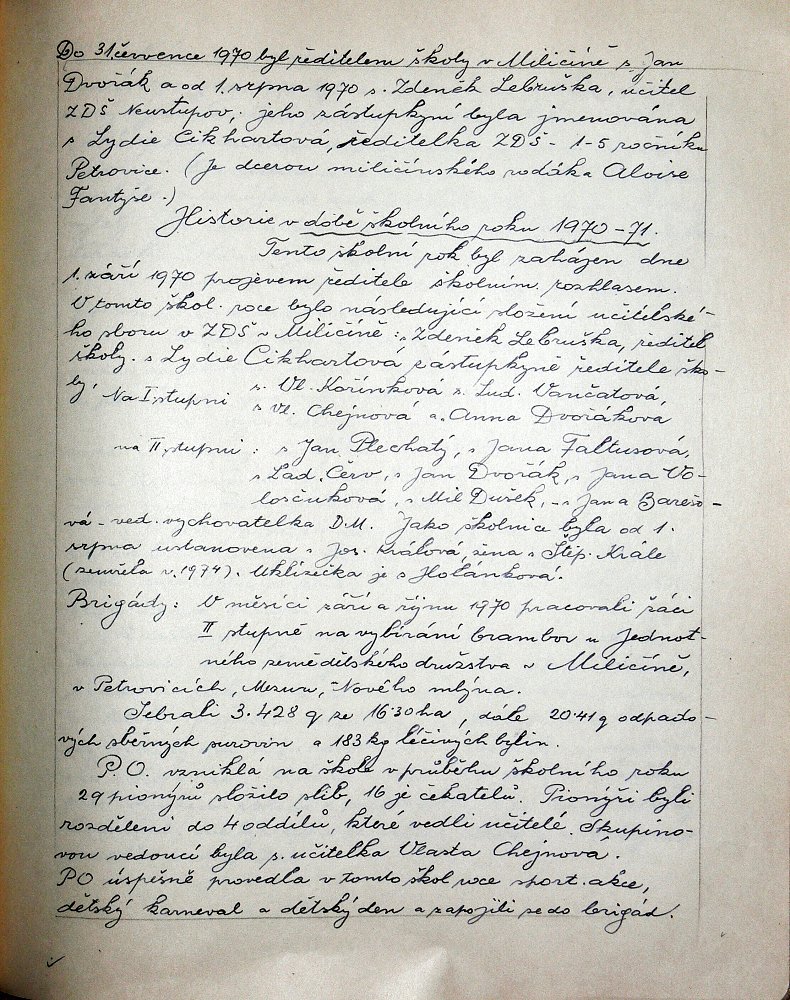 Do 31. července 1970 byl ředitelem školy v Miličíně s. Jan
Dvořák a od 1. srpna 1970 s. Zdeněk Lebruška, učitel
ZDŠ Neustupov, jeho zástupkyní byla jmenována
s Lydie Cikhartová, ředitelka ZDŠ - 1-5 ročníku
Petrovice. (Je dcerou miličínského rodáka Aloise
Fantyše.)
Historie v době školního roku 1970-71.
Tento školní rok byl zahájen dne
1. září 1970 projevem ředitele školním rozhlasem.
V tomto škol. roce bylo následující složení učitelské-
ho sboru v ZDŠ v Miličíně: s. Zdeněk Lebruška, ředitel
školy. s Lydie Cikhartová zástupkyně ředitele ško-
ly, Na I. stupni s. Vl. Kořínková s. Lud. Vančatová,
s Vl. Chejnová a. Anna Dvořákova
na II. stupni : s Jan Plechatý, s Jana Faltusová,
s Lad. Červ, s Jan Dvořák, s Jana Vo-
losčuková, s Mil Dušek, - s Jana Barešo-
vá - ved. vychovatelka D.M. Jako školnice byla od 1.
srpna ustanovena s Jos. Králová, žena s Štěp. Krále
(zemřela r. 1974). Uklízečka je s Holánková.
Brigády: V měsíci září a říjnu 1970 pracovali žáci
II stupně na vybírání brambor u Jednot-
ného zemědělského družstva v Miličíně,
v Petrovicích, Mezno, Nového mlýna.
Sebrali 3.428 q ze 16.30 ha, dále 20.41 q odpado-
vých sběrných surovin a 183 kg léčivých bylin.
P.O. vzniklá na škole v průběhu školního roku
29 pionýrů složilo slib, 16 je čekatelů. Pionýři byli
rozděleni do 4 oddílů, které vedli učitelé. Skupino-
vou vedoucí byla s. učitelka Vlasta Chejnová.
PO úspěšně provedla v tomto škol roce sport. akce,
dětský karneval a dětský den a zapojili se do brigád.